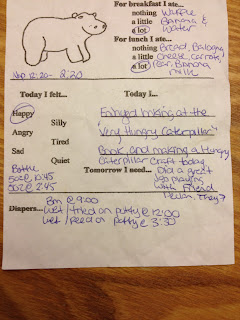 For breakfast I ate...
nothing Waffle
a little Banana &
a lot Water
For lunch I ate...
nothing Bread, Bologna
a little Cheese, carrots
a lot Pear, Banana
milk
Nap 12:20- 2:20
Today I felt... Today I...
Happy Enjoyed looking at the
Silly
Angry Very Hungry Caterpillar"
Tired
Sad Book, and making a Hungry
Quiet Caterpillar craft today.
Bottle
5oz @ 10:45
5oz @ 2:45
Tomorrow I need... Did a great
job playing
with Friend
They?
Diapers... Bm @ 9:00
Wet / tried on potty @ 12:00
Wet / peed on potty @ 3:30